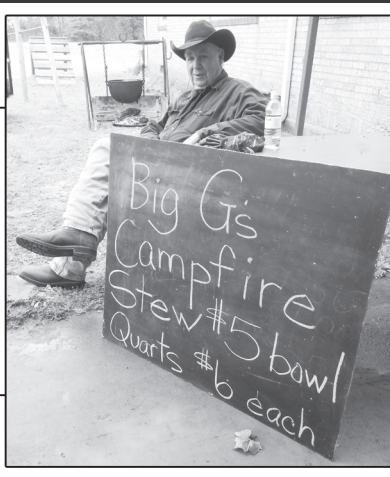 Big G's
Campfire
Stew $5 bowl
Quarts $6 each